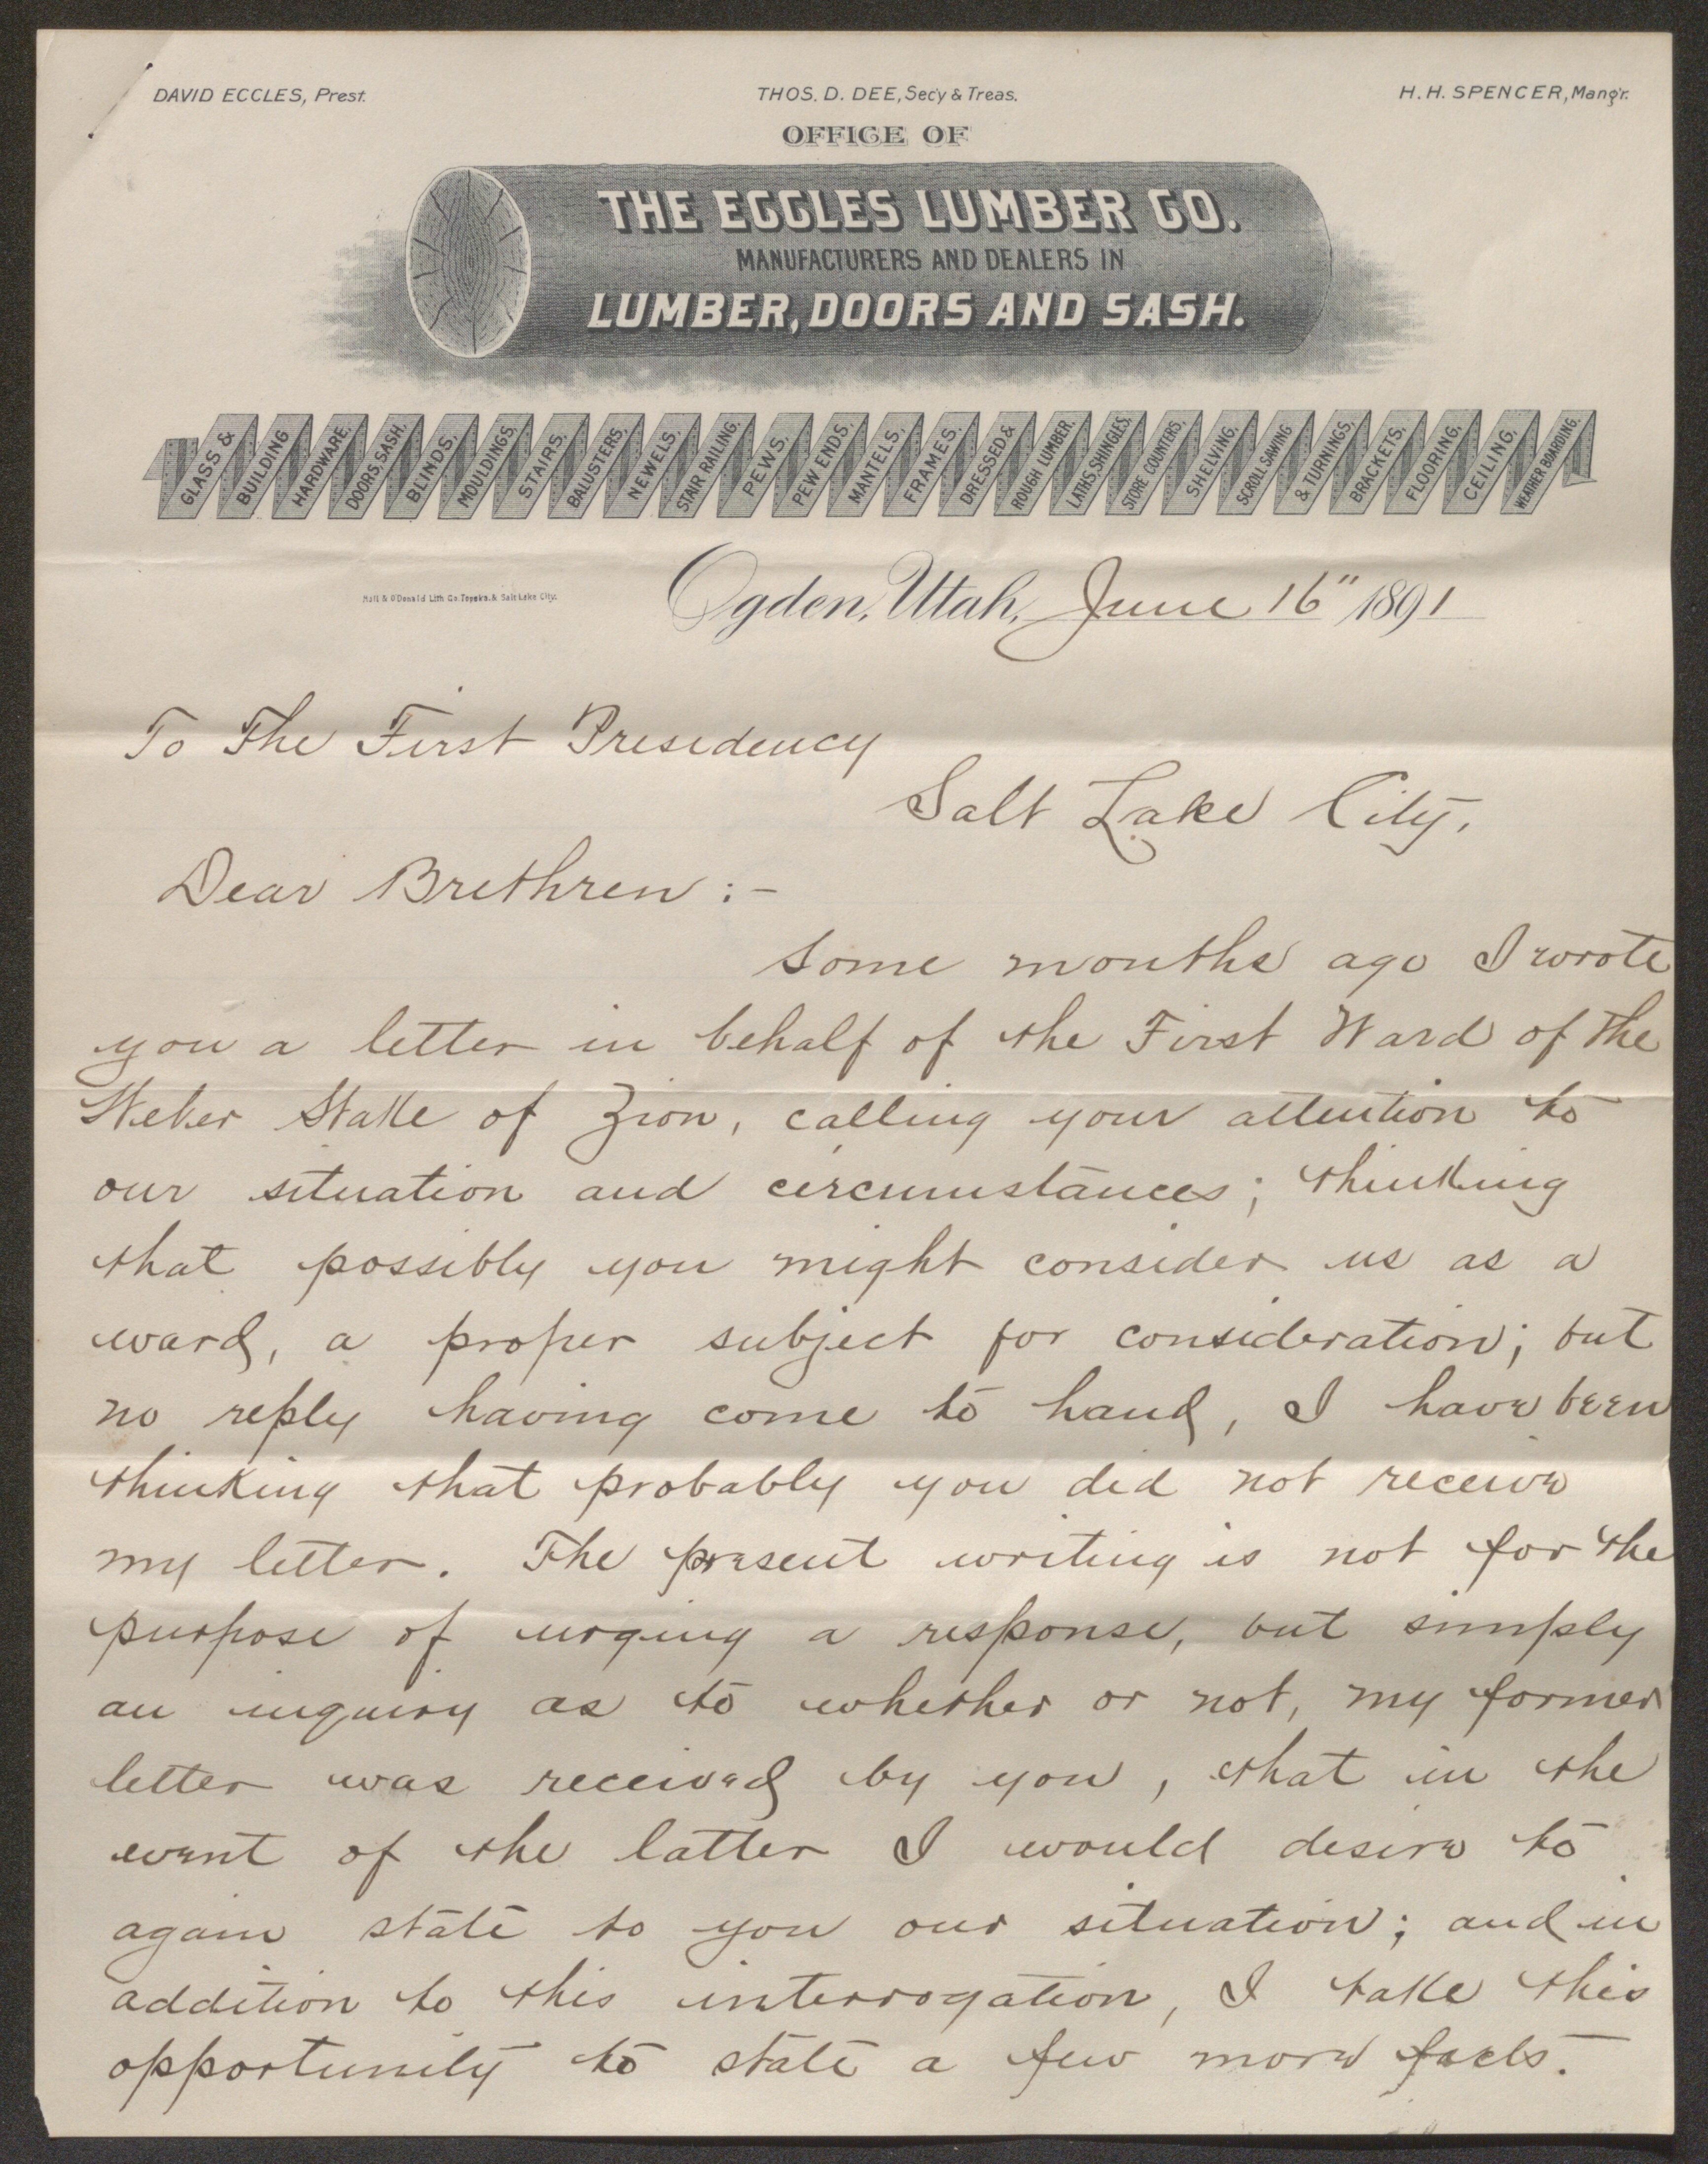 DAVID ECCLES, Prest.
THOS. D. DEE, Sec'y & Treas.
H. H. SPENCER, Mang'r.
OFFICE OF
THE ECCLES LUMBER CO.
MANUFACTURERS AND DEALERS IN
LUMBER, DOORS AND SASH.
GLASS & BUILDING HARDWARE, DOORS, SASH, BLINDS, MOULDINGS, STAIRS, BALUSTERS, NEWELS, STAIR RAILING, PEWS, PEW ENDS, MANTELS, FRAMES, DRESSED & ROUGH LUMBER, LATHS, SHINGLES, STORE COUNTERS, SHELVING, SCROLL SAWING & TURNINGS, BRACKETS, FLOORING, CEILING, WEATHER BOARDING.
Hall & O'Donald Lith Co. Topeka. & Salt Lake City.
Ogden, Utah, June 16" 1891
To The First Presidency
Salt Lake City.
Dear Brethren :-
Some months ago I wrote
you a letter in behalf of the First Ward of the
Weber Stake of Zion, calling your attention to
our situation and circumstances; thinking
that possibly you might consider us as a
ward, a proper subject for consideration; but
no reply having come to hand, I have been
thinking that probably you did not receive
my letter. The present writing is not for the
purpose of urging a response, but simply
an inquiry as to whether or not, my former
letter was received by you, that in the
event of the latter I would desire to
again state to you our situation; and in
addition to this interrogation, I take this
opportunity to state a few more facts.